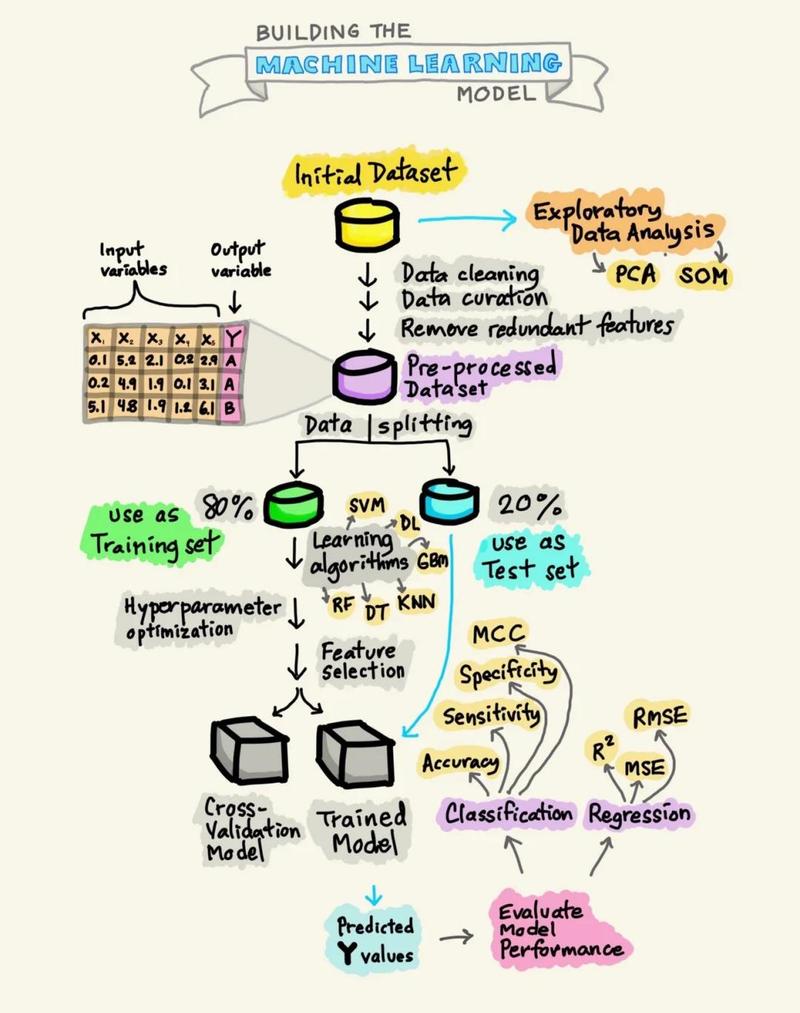 BUILDING THE
MACHINE LEARNING
MODEL
Initial Dataset
Exploratory
Data Analysis
PCA SOM
Data cleaning
Data curation
Remove redundant features
Input
variables
Output
variable
X₁ X₂ X₃ X₄ X₅ Y
0.1 5.2 2.1 0.2 2.9 A
0.2 4.9 1.9 0.1 3.1 A
5.1 4.8 1.9 1.2 6.1 B
Pre-processed
Dataset
Data splitting
80%
use as
Training set
20%
use as
Test set
Learning
algorithms
SVM
DL
GBM
RF DT KNN
Hyperparameter
optimization
Feature
selection
Cross-
Validation
Model
Trained
Model
Predicted
Y values
Evaluate
Model
Performance
Classification
Accuracy
Sensitivity
Specificity
MCC
Regression
R²
MSE
RMSE